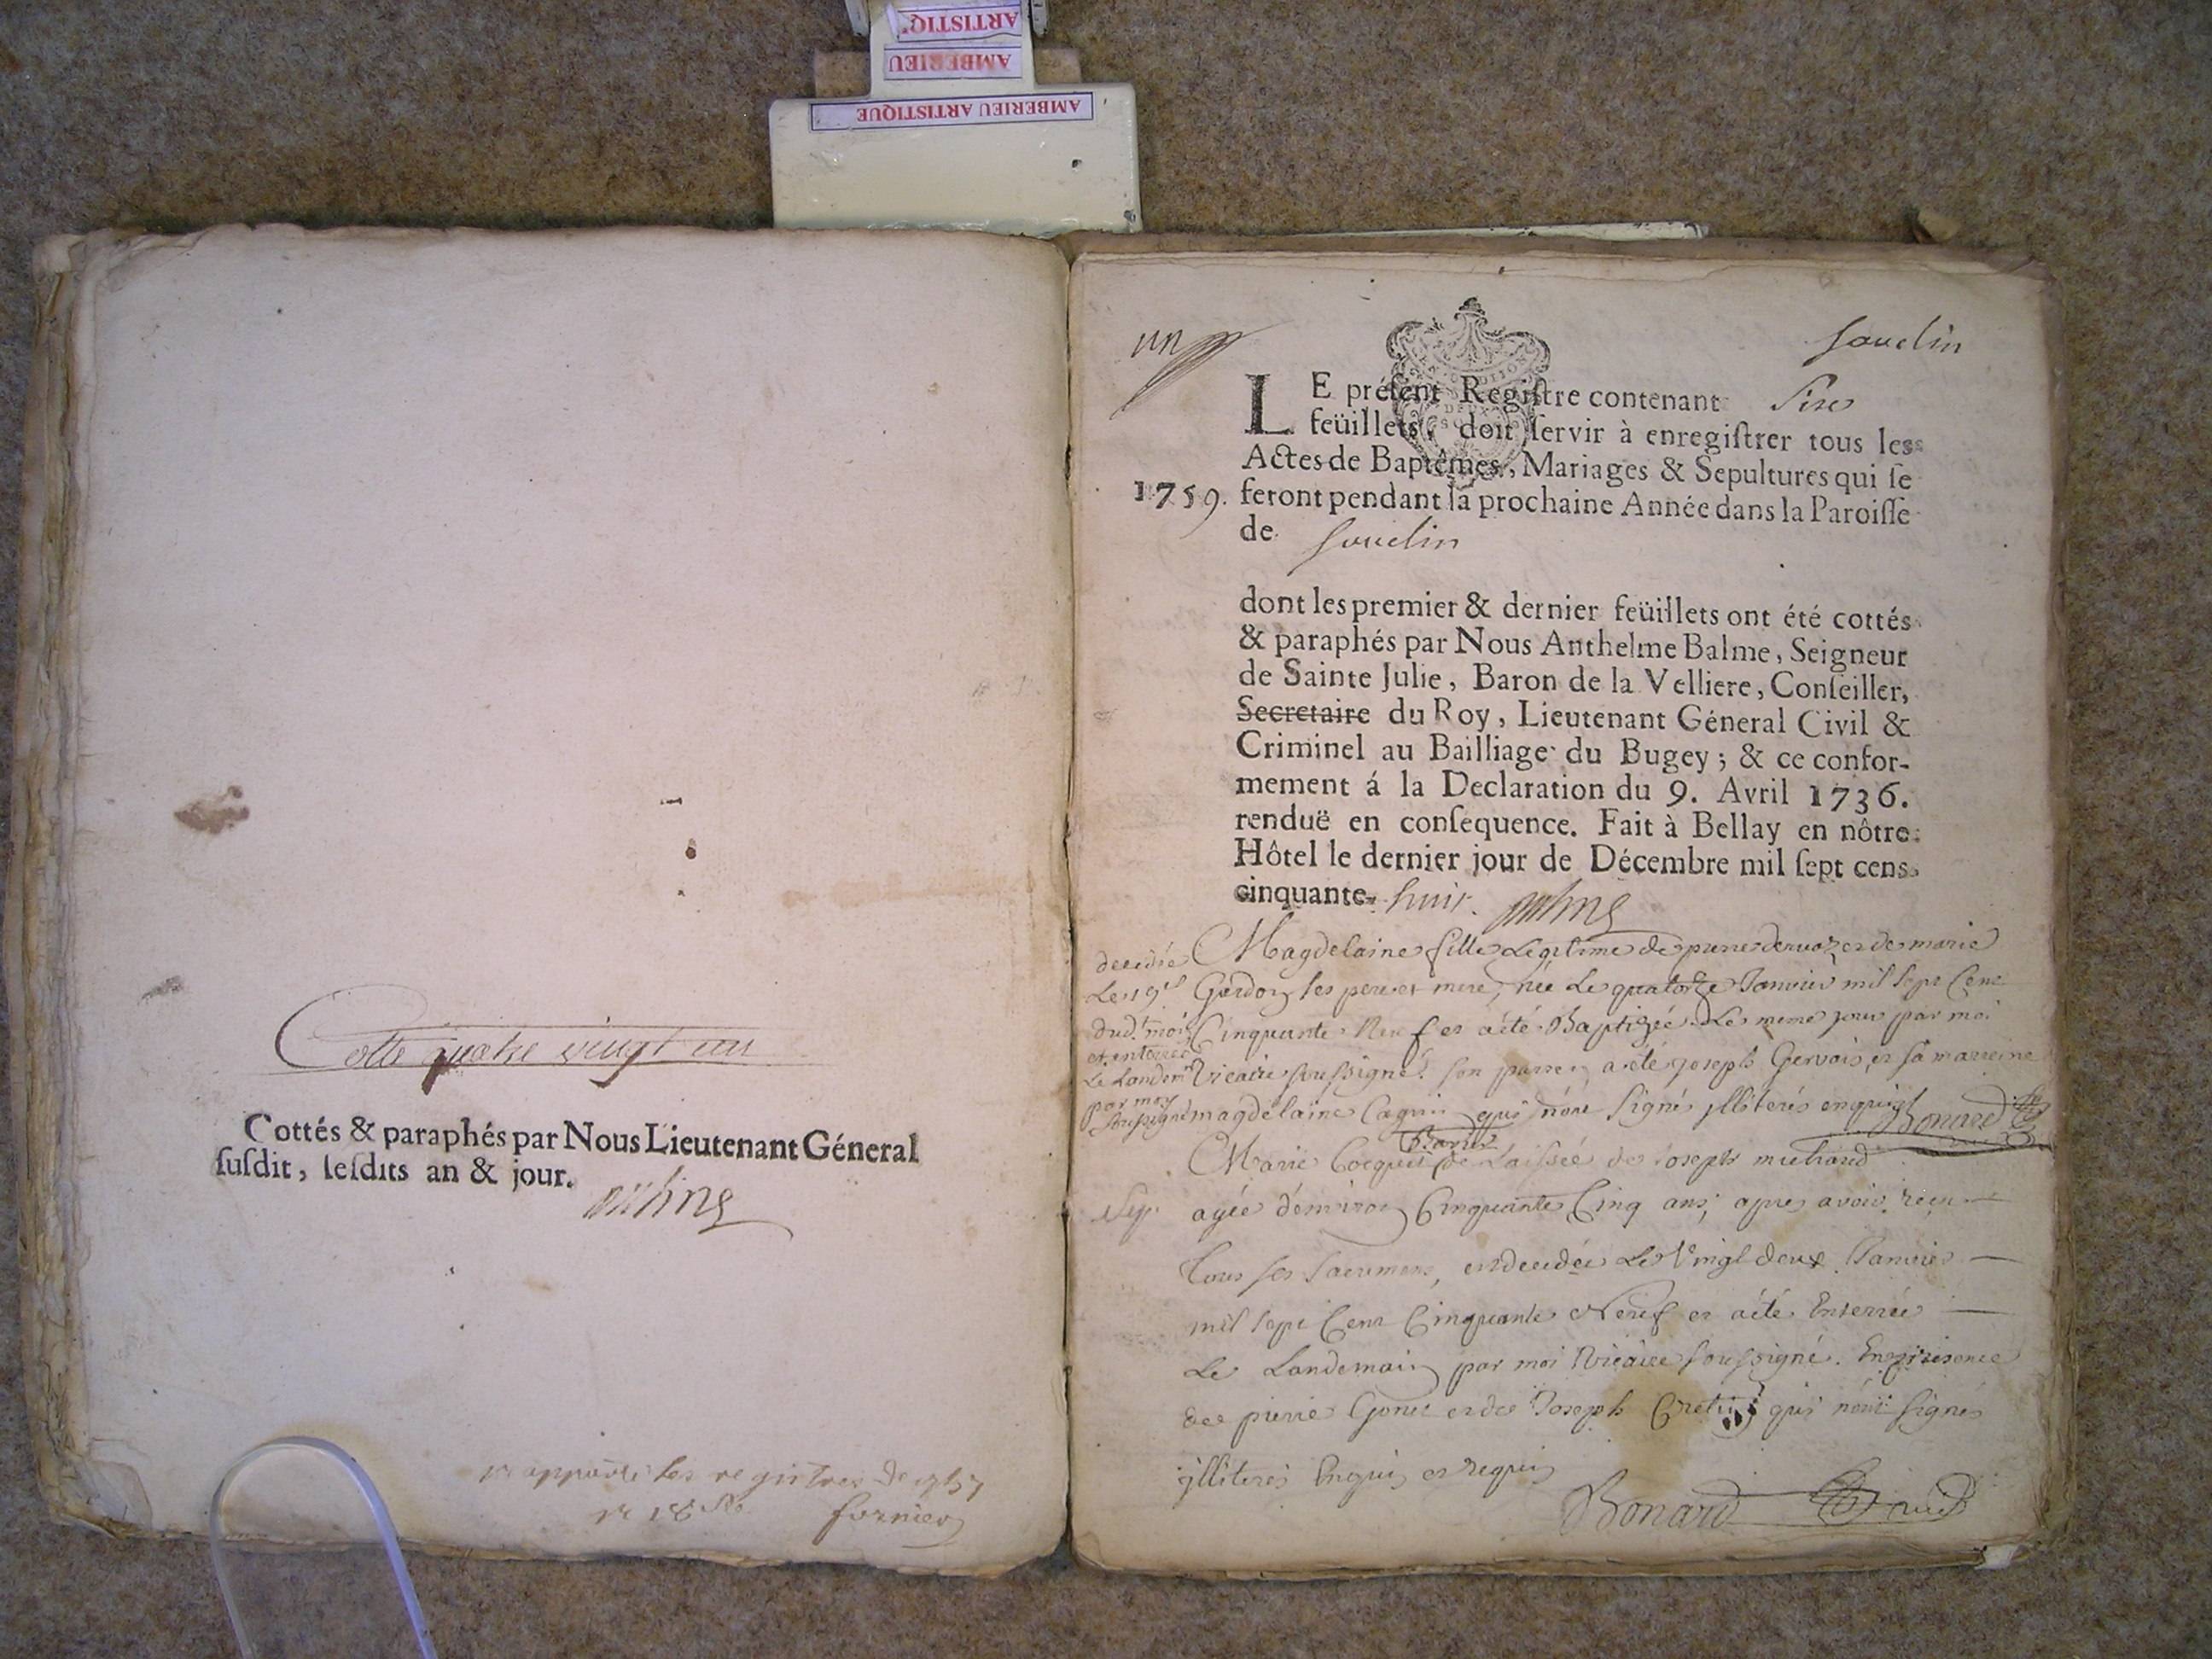 ARTISTIQ'
AMBERIEU
AMBERIEU ARTISTIQUE
Cotte quatre vingt un
Cottés & paraphés par Nous Lieutenant Géneral
suſdit, leſdits an & jour.
les registres de
un
souclin
LE préſent Regiſtre contenant Sixe
feüillets, doit ſervir à enregiſtrer tous les
Actes de Baptêmes, Mariages & Sepultures qui ſe
1759. feront pendant la prochaine Année dans la Paroiſſe
de souclin
dont les premier & dernier feüillets ont été cottés
& paraphés par Nous Anthelme Balme, Seigneur
de Sainte Julie, Baron de la Velliere, Conſeiller,
Secretaire du Roy, Lieutenant Géneral Civil &
Criminel au Bailliage du Bugey; & ce confor-
mement á la Declaration du 9. Avril 1736.
renduë en conſequence. Fait à Bellay en nôtre
Hôtel le dernier jour de Décembre mil ſept cens
cinquante-huit.
decedée
Le 19e
dud. mois
et enterrée
Le Landem.
par moy
soussigné
Magdelaine fille Legitime de pierre et de marie
ses pere et mere, née Le quatorze Janvier mil sept Cent
Cinquante Neuf et a été Baptizée Le meme jour par moi
Vicaire soussigné. son parrein a été joseph Gervais, et sa marreine
magdelaine qui n'ont signé illiterés enquis Bonard
Marie de Laissée de Joseph
Sep.
agée d'environ Cinquante Cinq ans, apres avoir reçu
Tous ses sacremens, est decedée Le Vingt deux Janvier
mil sept Cent Cinquante Neuf et a été Enterrée
Le Landemain par moi Vicaire soussigné. En presence
de pierre Gonet et de Joseph Cretin qui n'ont signés
illiterés Enquis et requis
Bonard vic.